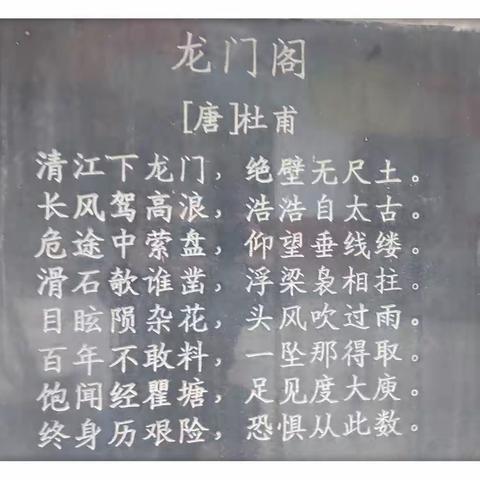 龙门阁
[唐]杜甫
清江下龙门，绝壁无尺土。
长风驾高浪，浩浩自太古。
危途中萦盘，仰望垂线缕。
滑石欹谁凿，浮梁袅相拄。
目眩陨杂花，头风吹过雨。
百年不敢料，一坠那得取。
饱闻经瞿塘，足见度大庾。
终身历艰险，恐惧从此数。